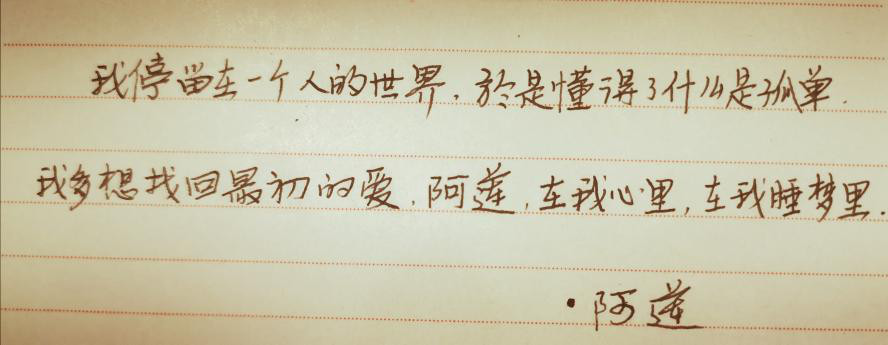 我停留在一个人的世界.於是懂得了什么是孤单.
我多想找回最初的爱.阿莲,在我心里,在我睡梦里.
·阿莲